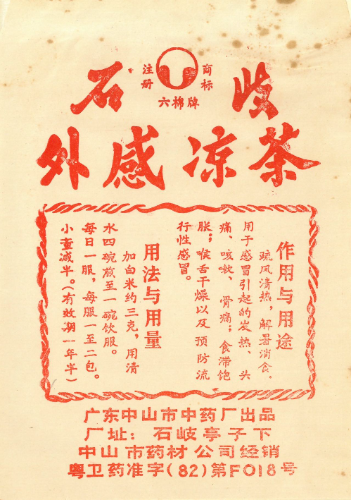 注册 商标
六棉牌
石岐
外感凉茶
作用与用途
疏风清热，解暑消食。
用于感冒引起的发热、头
痛、咳嗽、骨痛；食滞饱
胀；喉舌干燥以及预防流
行性感冒。
用法与用量
加白米约三克，用清
水四碗煎至一碗饮服。
每日一服，每服一至二包。
小童减半。（有效期一年半）
广东中山市中药厂出品
厂址：石岐亭子下
中山市药材公司经销
粤卫药准字(82)第F018号